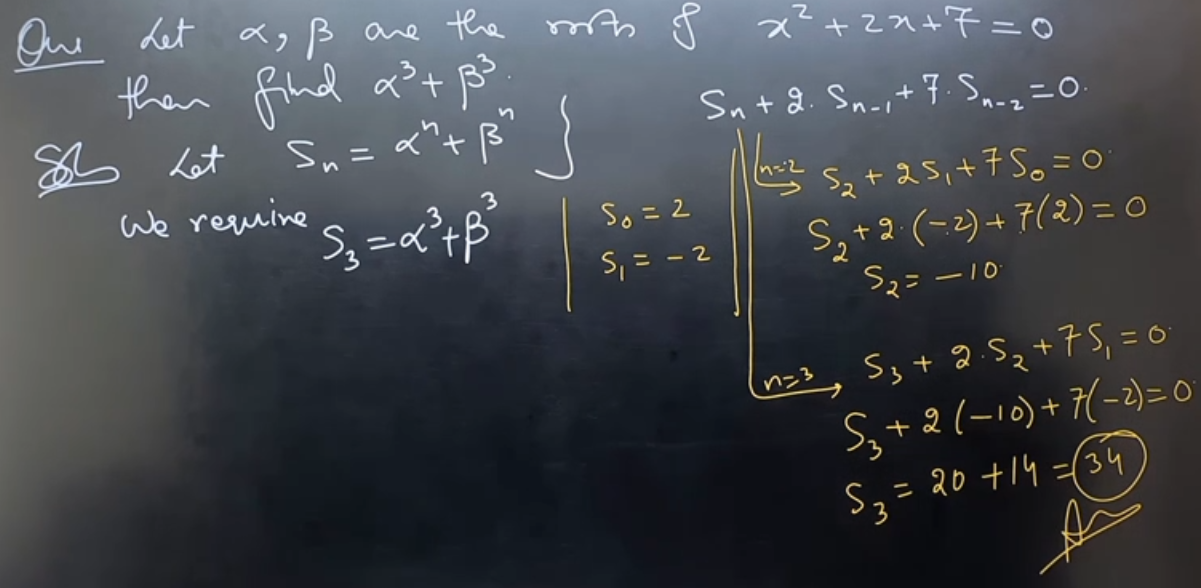 Que Let α, β are the roots of x² + 2x + 7 = 0
then find α³ + β³.
Sol Let Sₙ = αⁿ + βⁿ }
We require S₃ = α³ + β³
S₀ = 2
S₁ = -2
Sₙ + 2. Sₙ₋₁ + 7. Sₙ₋₂ = 0.
n=2 S₂ + 2S₁ + 7S₀ = 0
S₂ + 2.(-2) + 7(2) = 0
S₂ = -10
n=3 S₃ + 2.S₂ + 7S₁ = 0
S₃ + 2(-10) + 7(-2) = 0
S₃ = 20 + 14 = 34